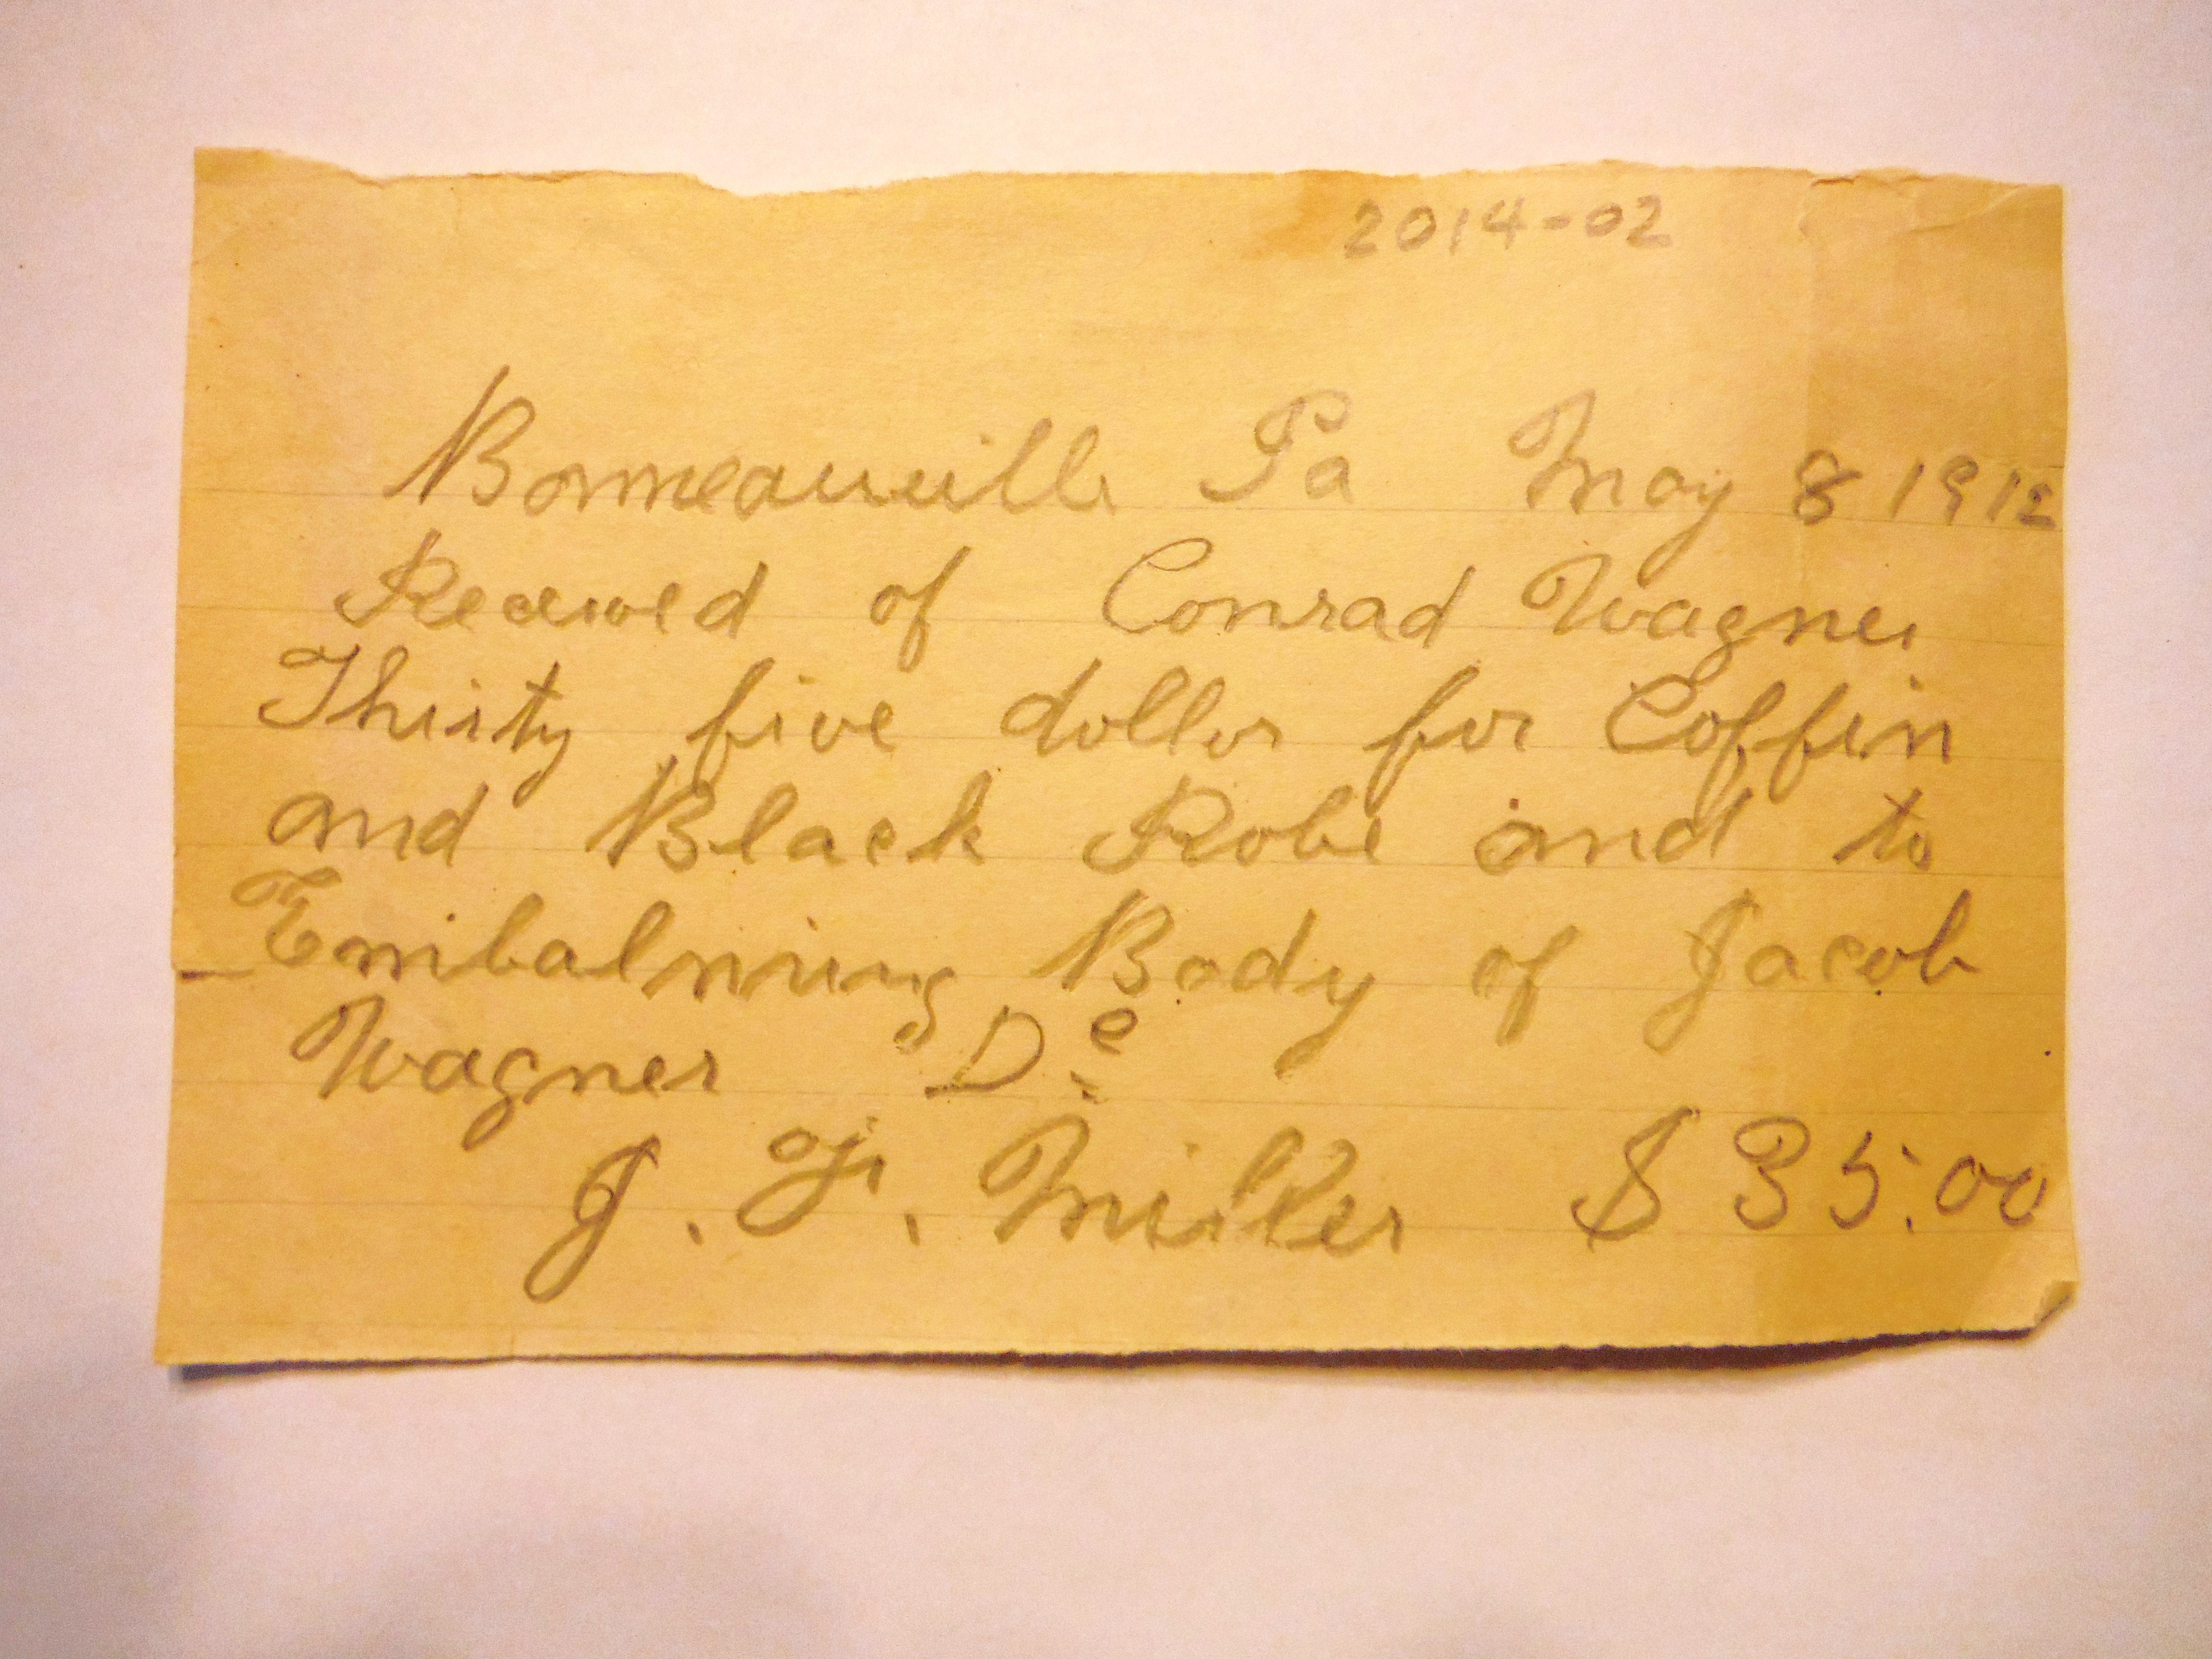 2014-02
Bonneauville Pa May 8 1912
Received of Conrad Wagner
Thirty five dollor for Coffin
and Black Robe and to
Embalming Body of Jacob
Wagner De
J. F. Miller $ 35.00